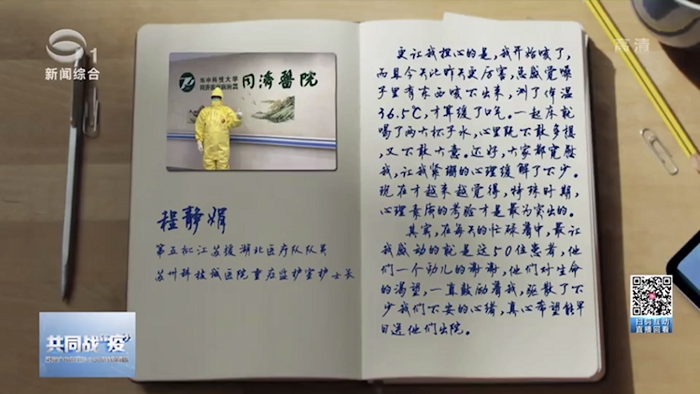 1
新闻综合
高清
华中科技大学
同济医院
程静娟
第五批江苏援湖北医疗队队员
苏州科技城医院重症监护室护士长
更让我担心的是，我开始咳了，
而且今天比昨天更厉害，总感觉嗓
子里有东西咳不出来，测了体温
36.5℃，才算缓了口气。一起床就
喝了两大杯子水，心里既不敢多想，
又不敢大意。还好，大家都宽慰
我，让我紧绷的心理缓解了不少。
现在才越来越觉得，特殊时期，
心理素质的考验才是最为突出的。
其实，在每天的忙碌着中，最让
我感动的就是这50位患者，他
们一个劲儿的谢谢，他们对生命
的渴望，一直鼓励着我，驱散了不
少我们不安的心绪，真心希望能早
日送他们出院。
共同战“疫”
扫码互动
直播回看